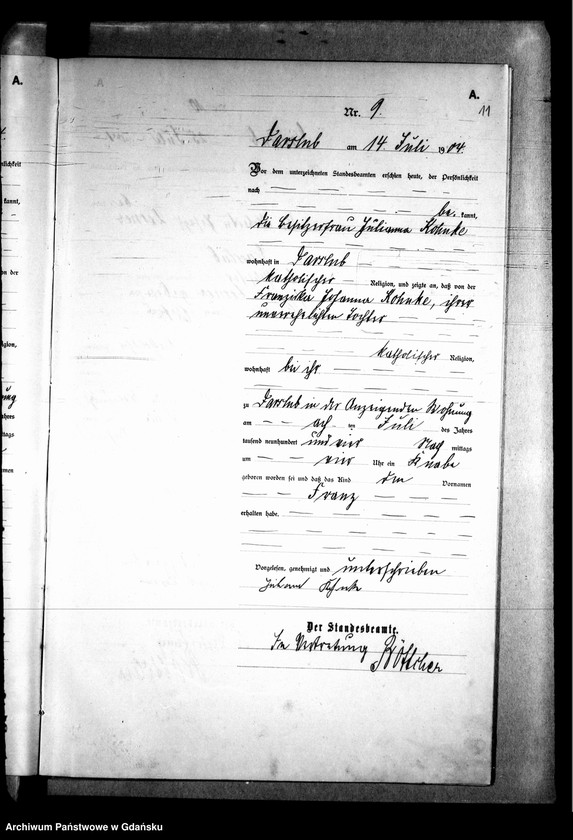 A.
A.
11
Nr. 9.
Darslub am 14. Juli 1904.
Vor dem unterzeichneten Standesbeamten erschien heute, der Persönlichkeit
nach
be kannt,
die Besitzerfrau Julianna Kohnke
wohnhaft in Darslub
katholischer Religion, und zeigte an, daß von der
Franziska Johanna Kohnke, ihrer
unverehelichten Tochter
katholischer Religion,
wohnhaft bei ihr
zu Darslub in der Anzeigenden Wohnung
am acht ten Juli des Jahres
tausend neunhundert und vier Nach mittags
um vier Uhr ein Knabe
geboren worden sei und daß das Kind den Vornamen
Franz
erhalten habe.
Vorgelesen, genehmigt und unterschrieben
Der Standesbeamte.
In Vertretung Böttcher
Archiwum Państwowe w Gdańsku